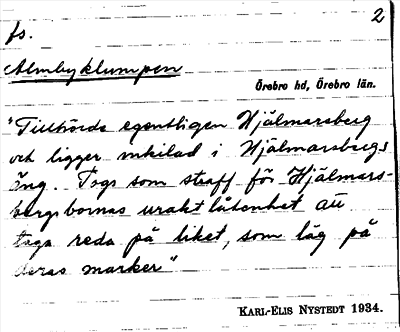 2
fs.
Almbyklumpen
Örebro hd, Örebro län.
"Tillhörde egentligen Hjälmarsberg
och ligger inkilad i Hjälmarsbergs
äng. Togs som straff för Hjälmars-
bergsbornas uraktlåtenhet att
taga reda på liket, som låg på
deras marker"
KARL-ELIS NYSTEDT 1934.